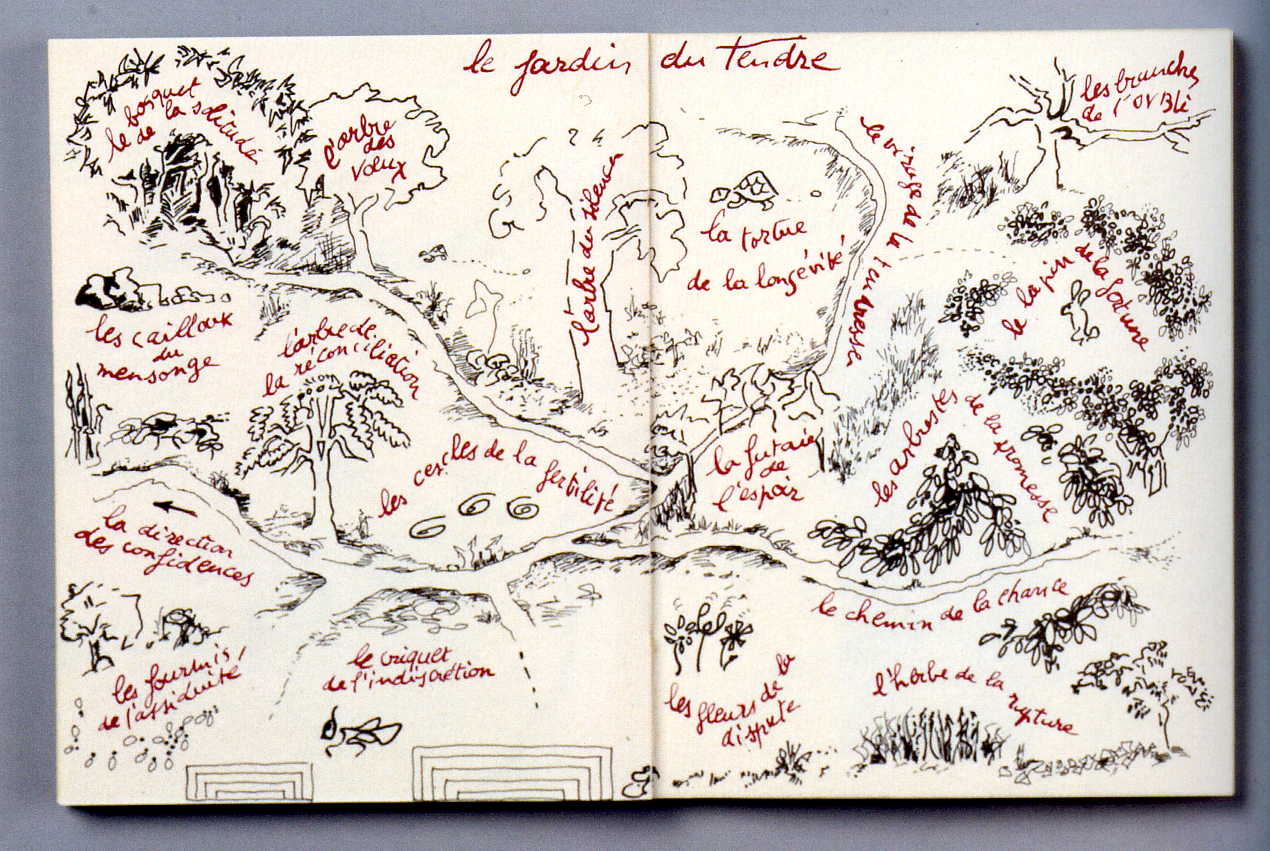 le jardin du Tendre
le bosquet
de la solitude
l'arbre
des
vœux
l'arbre du silence
la tortue
de la longévité
le virage de la tendresse
les branches
de l'OUBLi
les cailloux
du
mensonge
l'arbre de
la réconciliation
le lapin de la fortune
les cercles de la fertilité
la futaie
de
l'espoir
les arbustes de la promesse
la direction
des confidences
le chemin de la chance
les fourmis
de l'assiduité
le criquet
de l'indiscrétion
les fleurs de la
dispute
l'herbe de la rupture